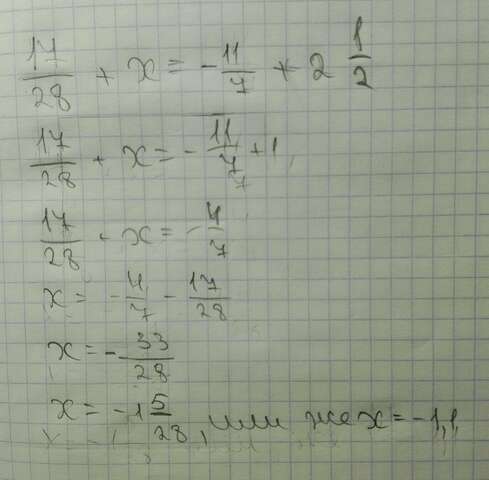 17/28 + x = - 11/7 + 2 1/2
17/28 + x = - 11/7 + 1
17/28 + x = - 4/7
x = - 4/7 - 17/28
x = - 33/28
x = - 1 5/28, или же x = - 1,1